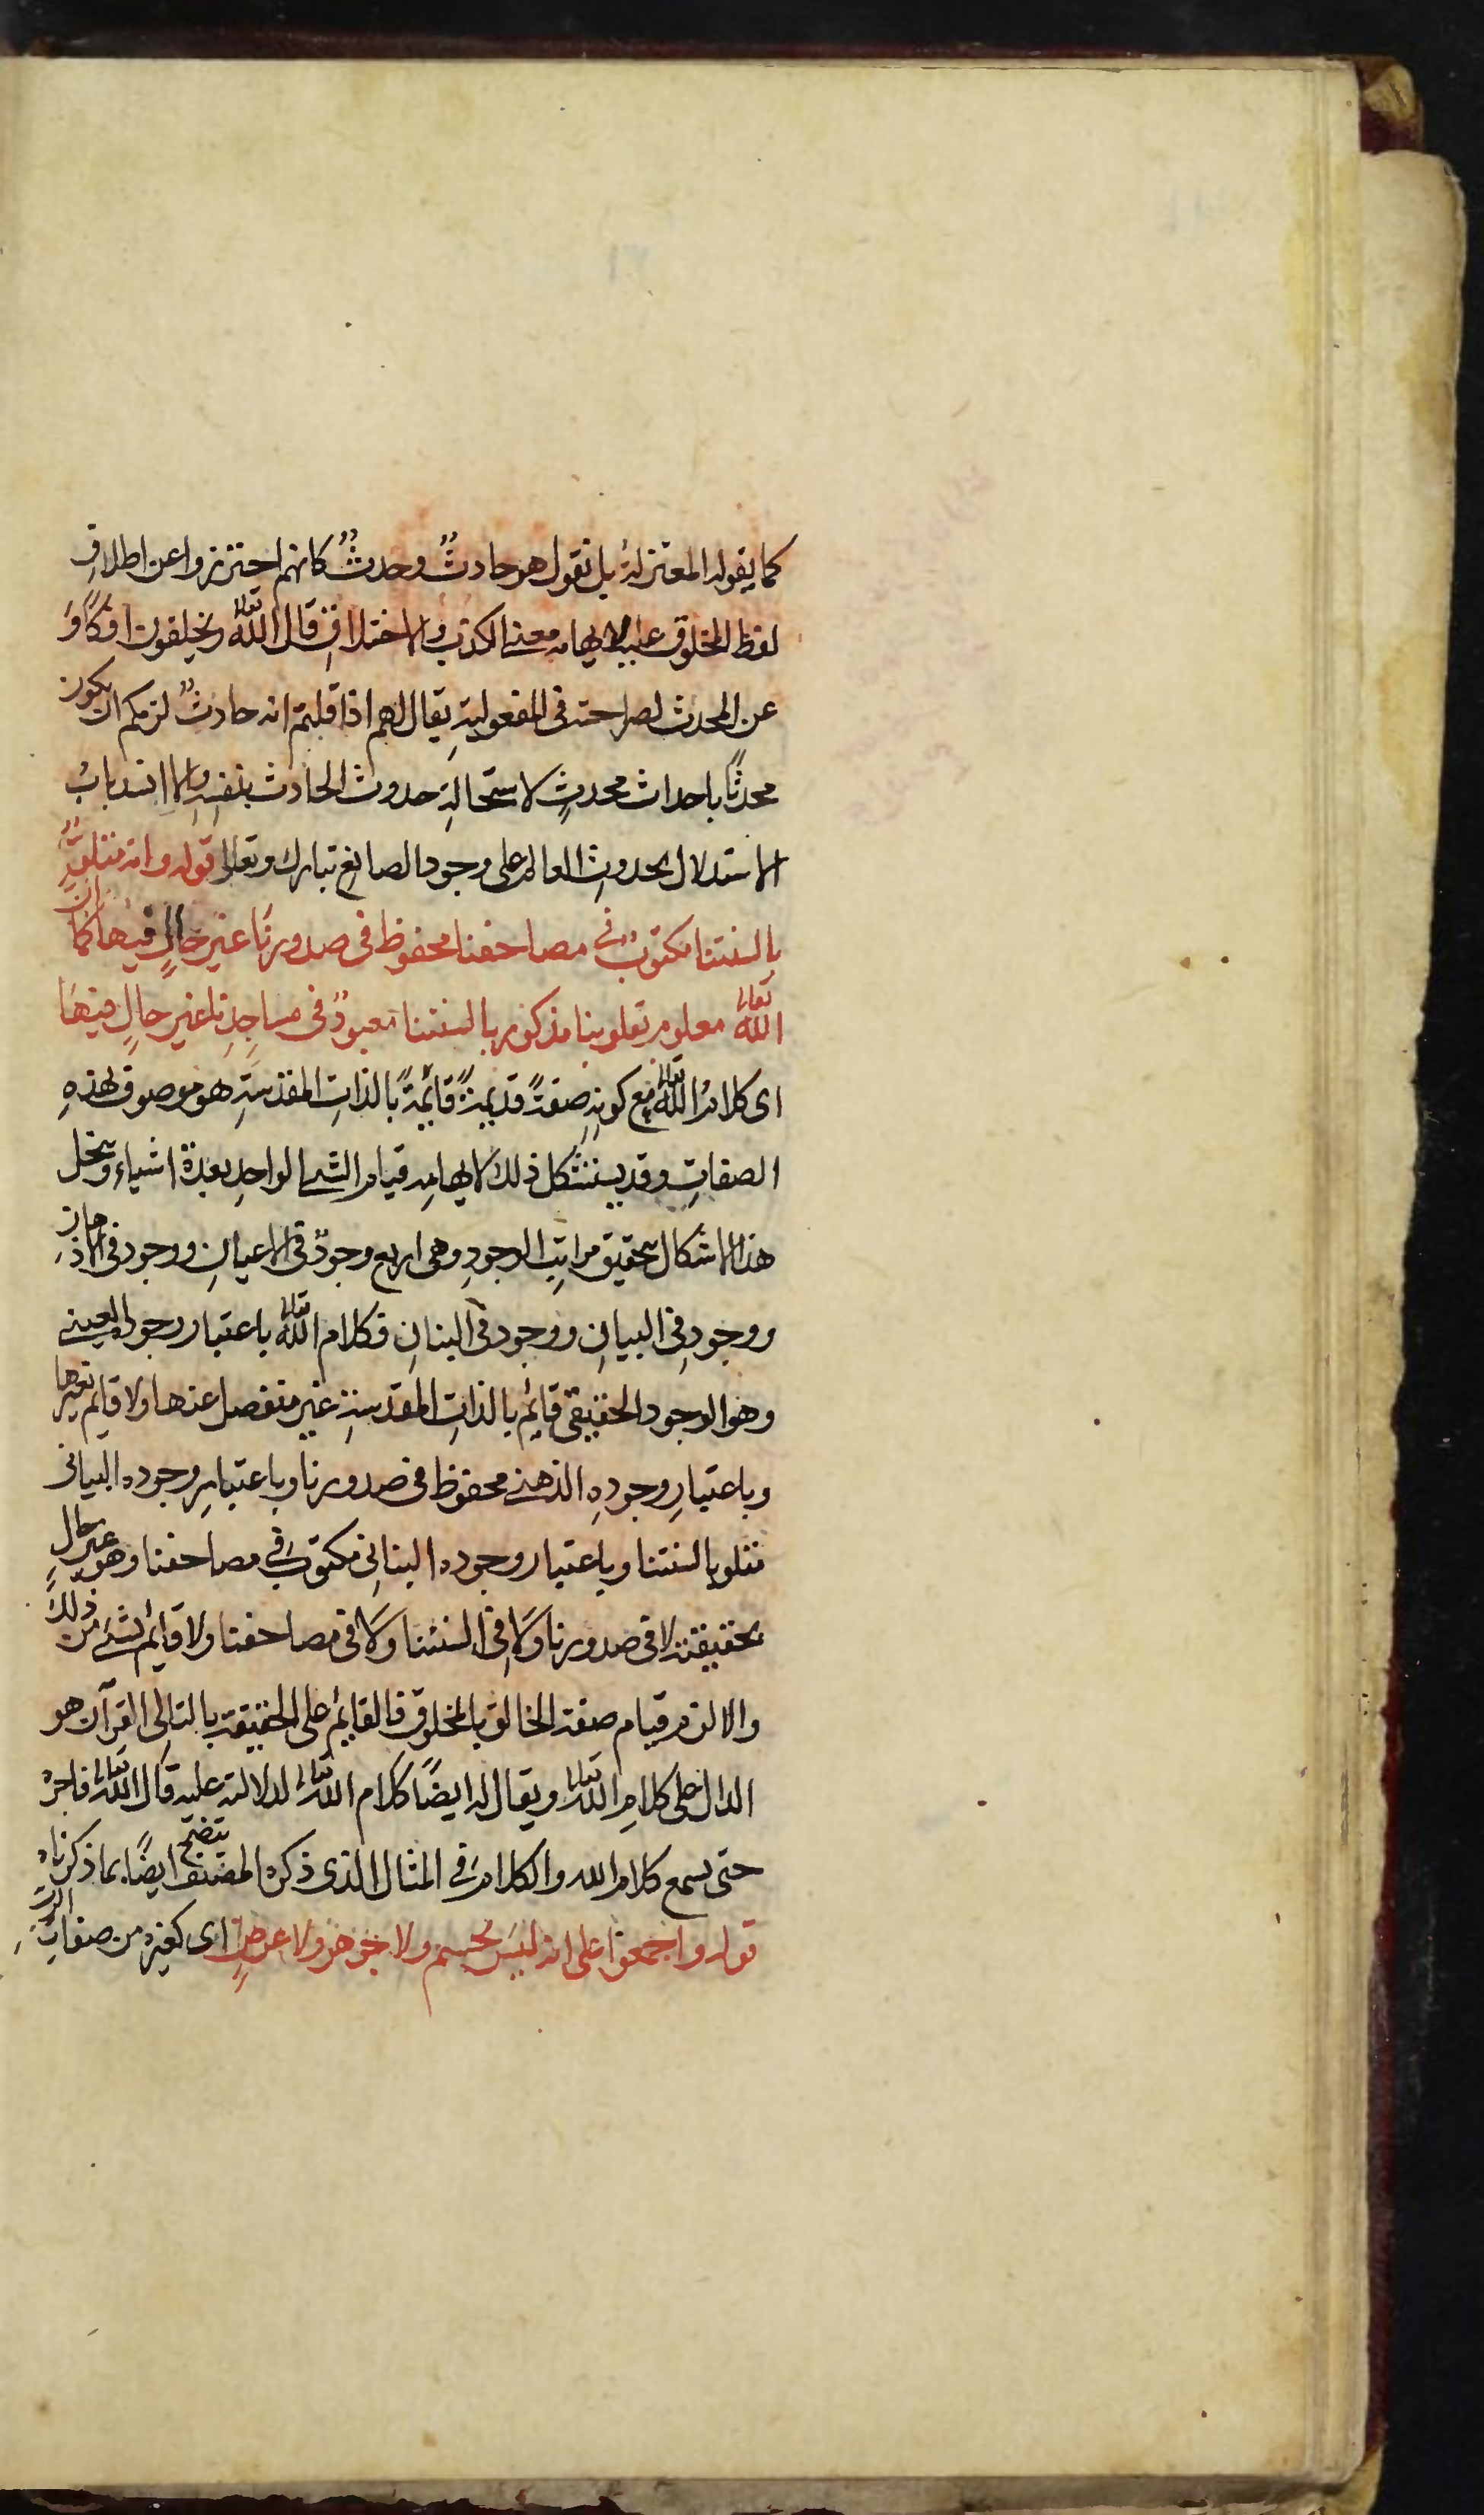 كما يقوله المعتزلة بل نقول هو حادثٌ وحدثٌ كانهم احترزوا عن اطلاقِ
لفظ المخلوق عليه لايهامه معنى الكذب والاختلاق قال الله تعالى وتخلقون افكًا و
عن المحدث لصراحته فى المفعوليةِ يقال لهم اذا قلتم انه حادثٌ لزمكم ان يكون
محدثًا باحداث محدثٍ لاستحالةِ حدوث الحادث بنفسه والا انسد بابُ
الاستدلال بحدوثِ العالم على وجود الصانع تبارك وتعالى قوله وانه متلوٌّ
بالسنتنا مكتوبٌ فى مصاحفنا محفوظ فى صدورنا غير حالٍ فيها كما ان
الله تعالى معلوم بقلوبنا مذكور بالسنتنا معبودٌ فى مساجدنا غير حالٍ فيها
اى كلام الله تعالى مع كونهِ صفةً قديمةً قائمةً بالذاتِ المقدسةِ هو موصوف بهذهِ
الصفاتِ وقد يستشكل ذلك لايهامه قيام الشئ الواحدِ بعدة اشياء وينحل
هذا الاشكال بتحقيق مراتب الوجودِ وهى اربع وجودٌ فى الاعيانِ ووجود فى الاذهان
ووجود فى البيانِ ووجود فى البنانِ فكلام الله تعالى باعتبار وجوده العينى
وهو الوجود الحقيقى قايم بالذاتِ المقدسةِ غير منفصل عنها ولا قايم بغيرها
وباعتبارِ وجودهِ الذهنى محفوظ فى صدورنا وباعتبارِ وجوده البيانى
متلو بالسنتنا وباعتبار وجوده البنانى مكتوب فى مصاحفنا وهو غير حال
بحقيقته لا فى صدورنا ولا فى السنتنا ولا فى مصاحفنا ولا قايم بشئ من ذلك
والا لزم قيام صفة الخالق بالمخلوق فالقايم على الحقيقة بالتالى القرآن هو
الدال على كلامِ الله تعالى ويقال له ايضًا كلام الله تعالى لدلالته عليه قال الله تعالى فاجره
حتى يسمع كلام الله والكلام فى المثال الذى ذكره المصنف يتضح ايضًا بما ذكرناه
قوله واجمعوا على انه ليس بجسم ولا جوهر ولا عرضٍ اى كغيره من صفات الرب